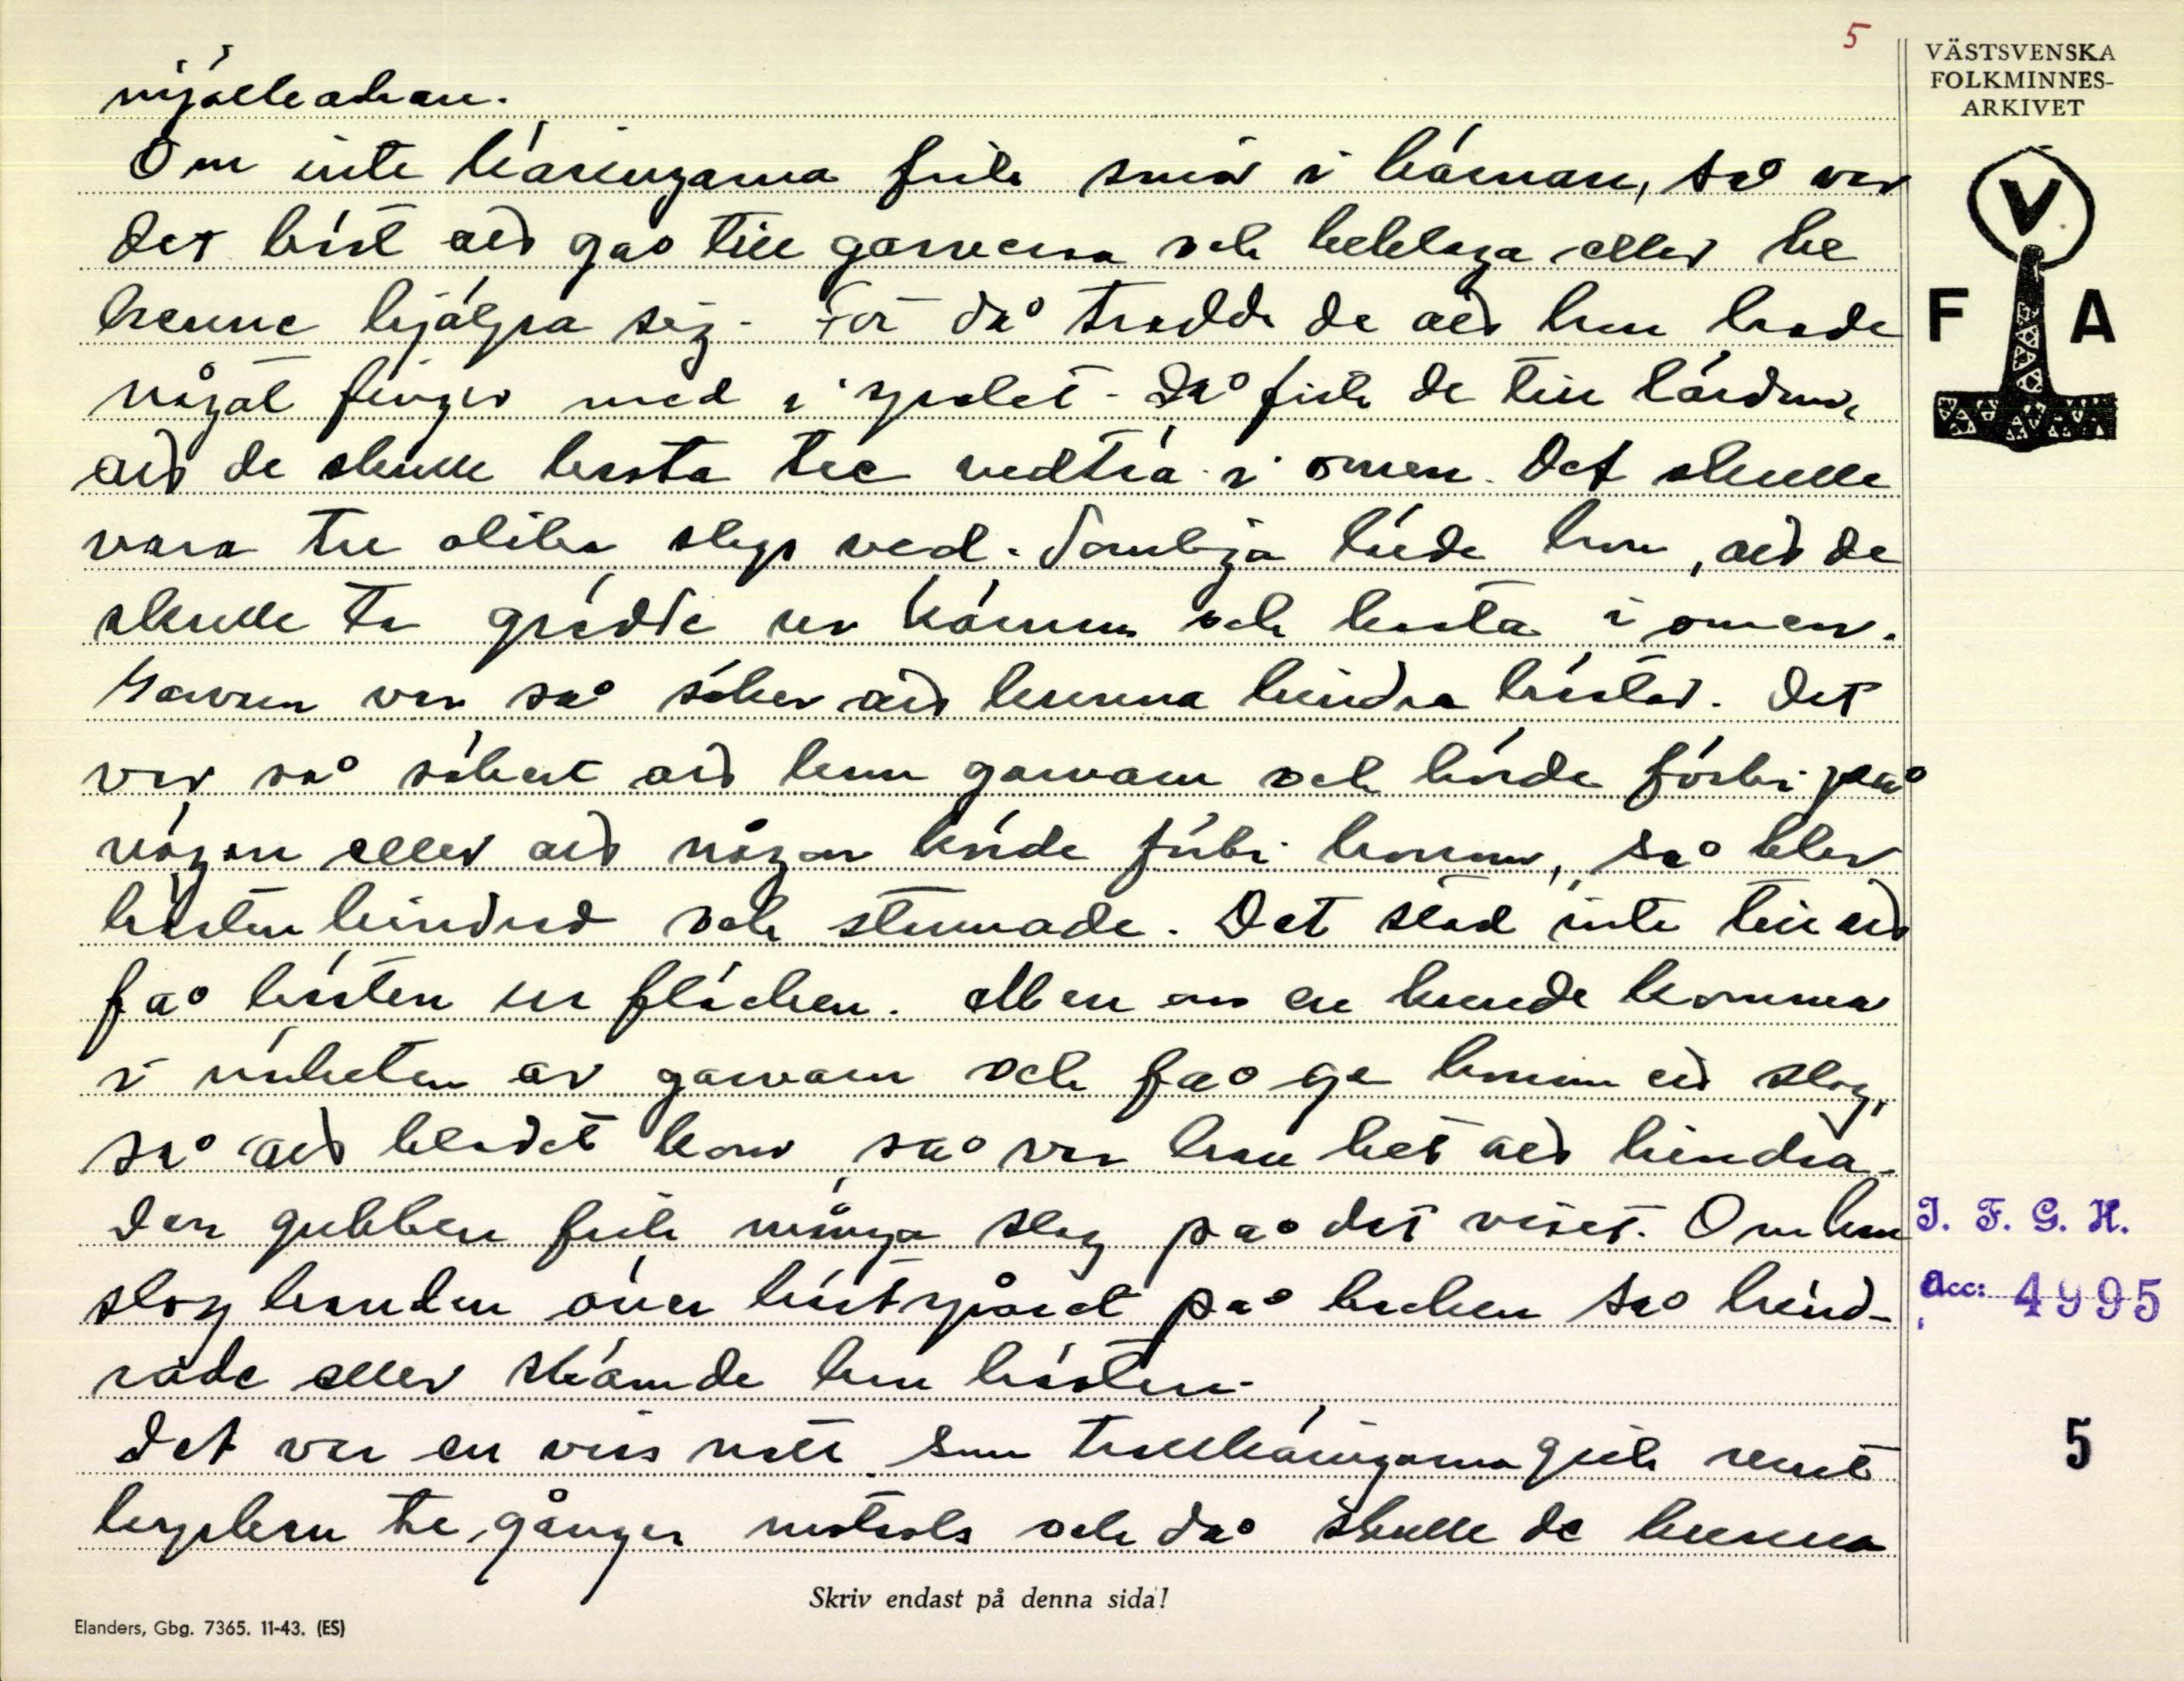 5
VÄSTSVENSKA
FOLKMINNES-
ARKIVET
mjölkedran.
Om inte käringarna fick smör i kärnan, så var
det bäst att gå till garvarn och beklaga eller be
henne hjälpa sig. För då trodde de att hon hade
något finger med i spelet. Då fick de till lärdom,
att de skulle kasta tre vedträ i omen. Det skulle
vara tre olika slags ved. Somliga lärde hon, att de
skulle ta grädde ur kärnan och kasta i omen.
Garvarn var så säker att kunna hindra hästar. Det
var så säkert att kom garvarn och körde förbi på
vägen eller att någon körde förbi honom, så blev
hästen hindrad och stannade. Det stod inte till att
få hästen ur fläcken. Men om en kunde komma
i närheten av garvarn och få ge honom ett slag,
så att blodet kom, så var han het att hindra.
Den gubben fick många slag på det viset. Om han
slog handen över hästspåret på backen så hind-
rade eller skämde han hästen.
Det var en viss natt som trollkäringarna gick runt
kyrkan tre gånger motsols och då skulle de kunna
V
F A
I. F. G. H.
Acc: 4995
5
Skriv endast på denna sida!
Elanders, Gbg. 7365. 11-43. (ES)